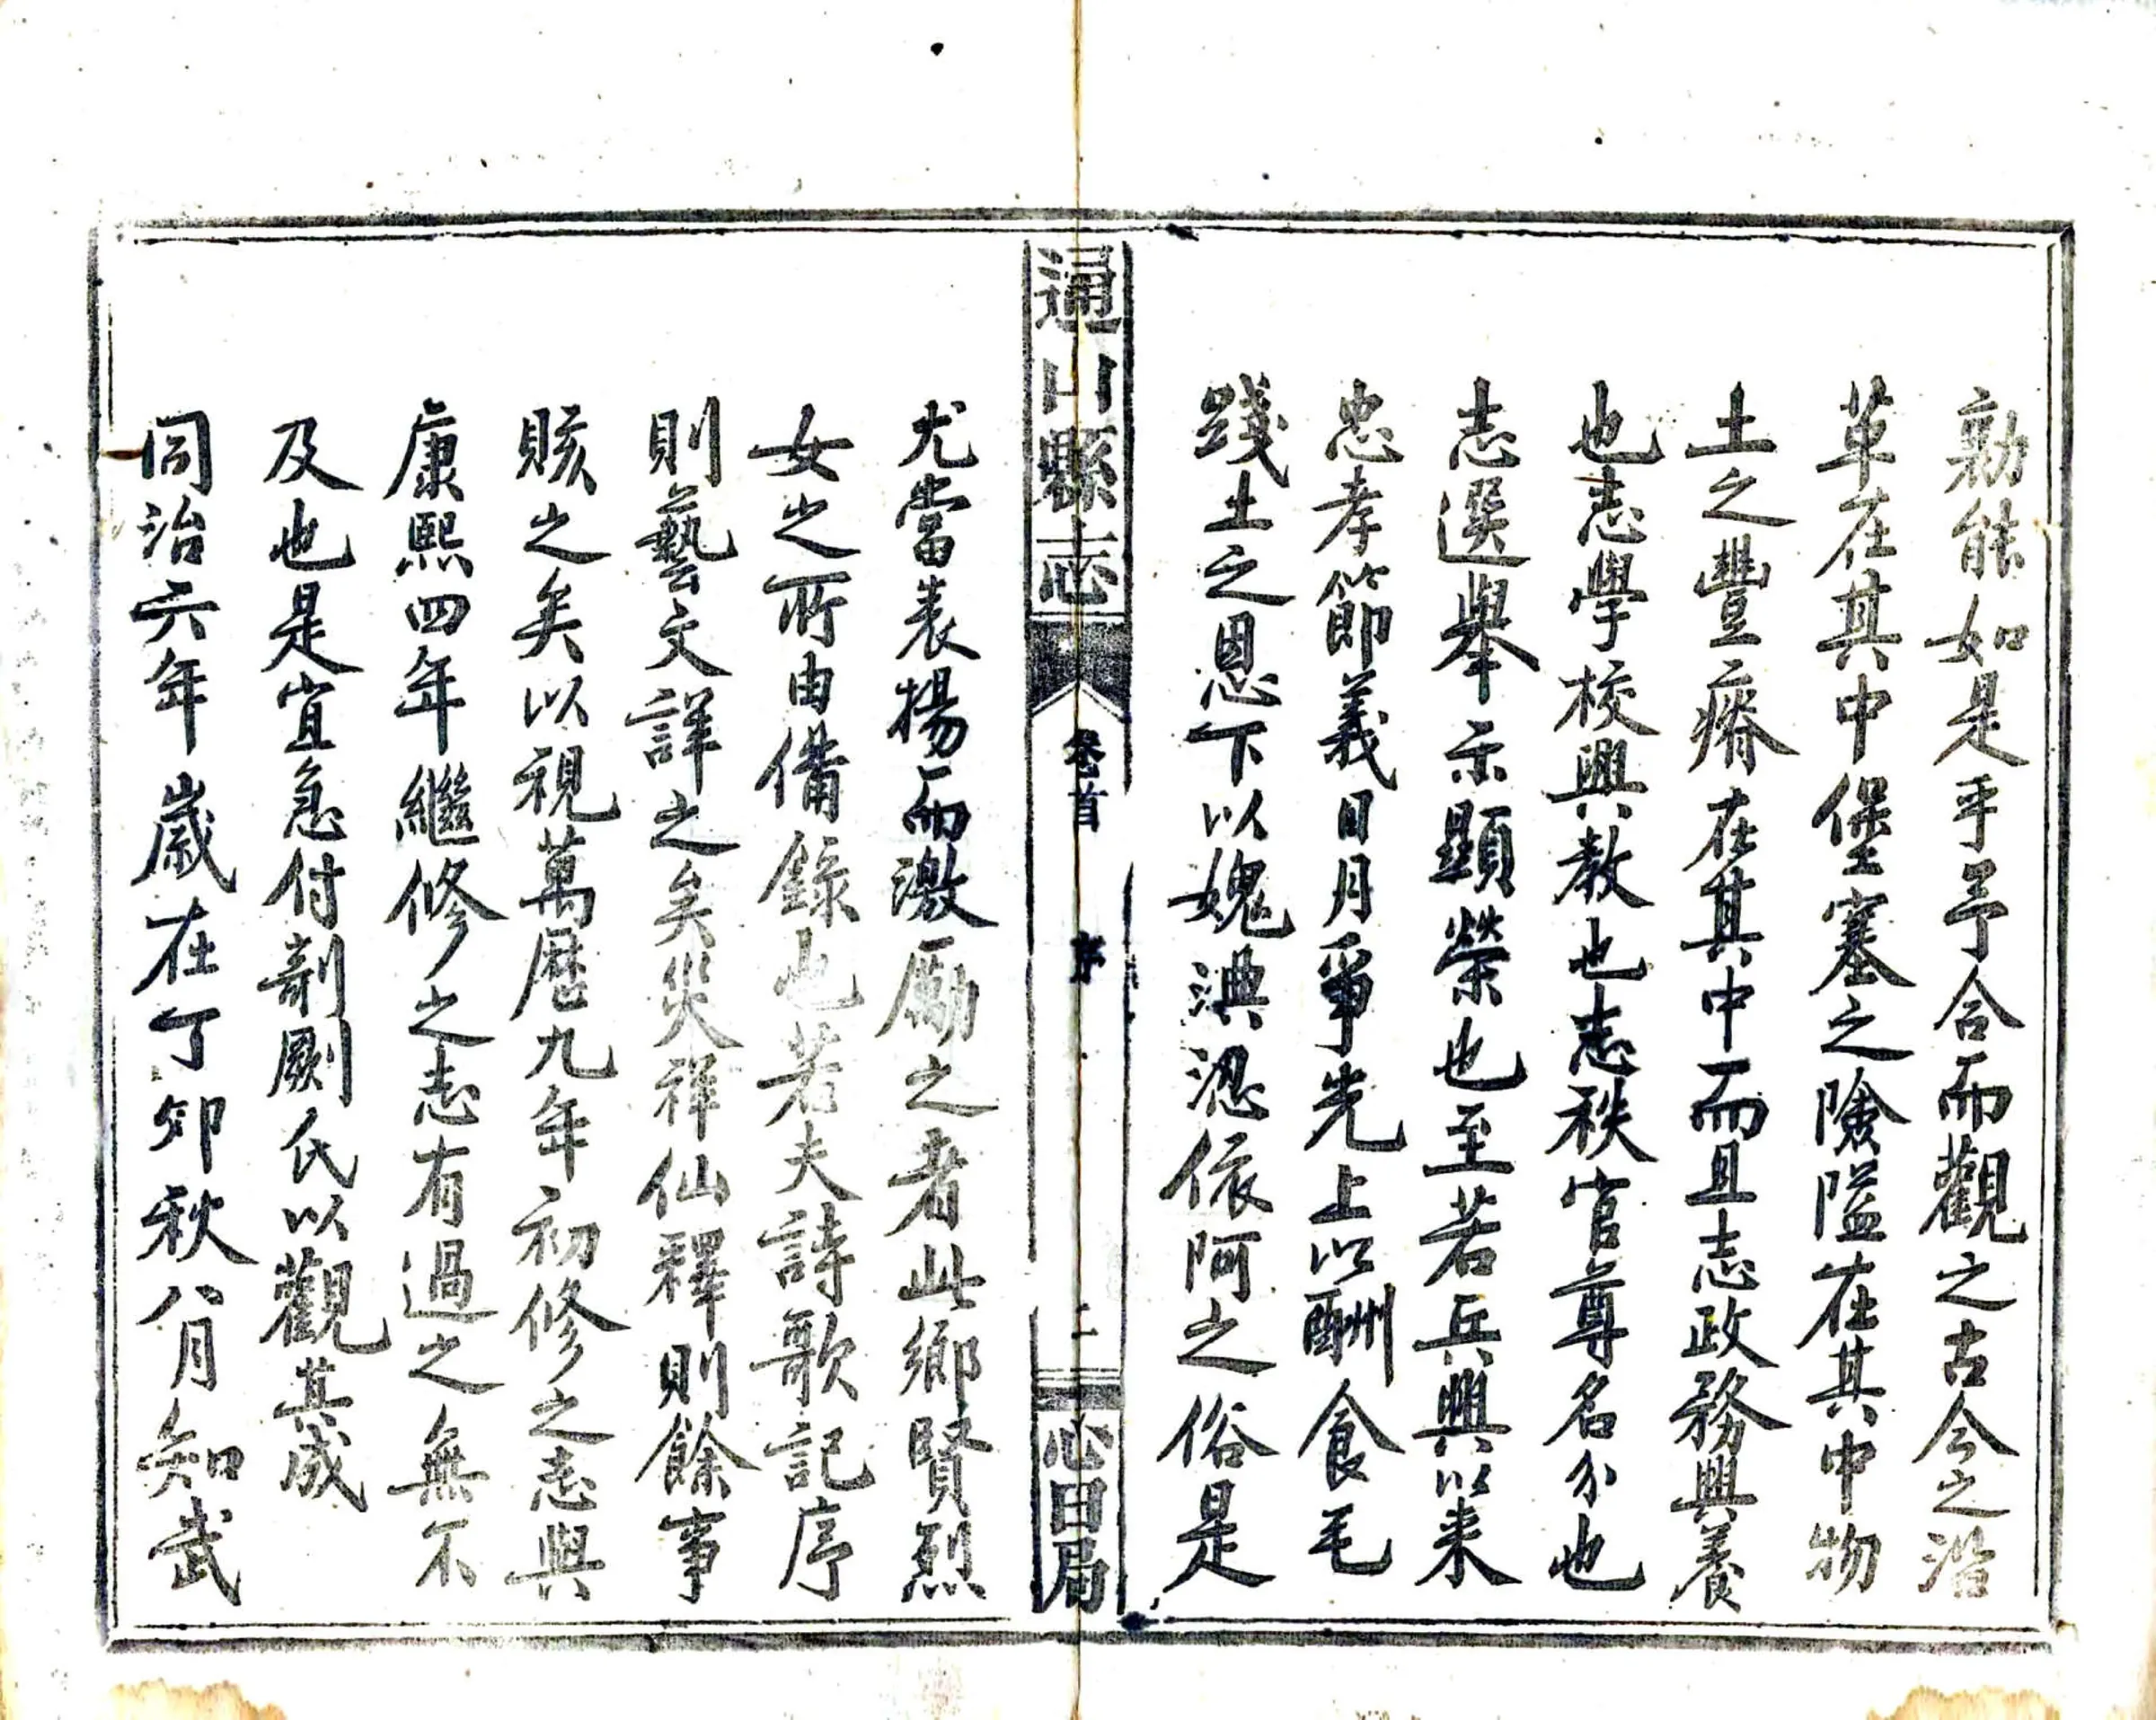 勷能如是乎予合而觀之古今之沿
革在其中堡塞之險隘在其中物
土之豐瘠在其中而且志政務興養
也志學校興教也志秩官尊名分也
志選舉示顯榮也至若兵興以来
忠孝節義日月爭光上以酬食毛
踐土之恩下以媿淟涊依阿之俗是
通山縣志
卷首
序
二
心田局
尤當表揚而激勵之者此鄉賢烈
女之所由備錄也若夫詩歌記序
則藝文詳之矣災祥仙釋則餘事
賅之矣以視萬歷九年初修之志與
康熙四年繼修之志有過之無不
及也是宜急付剞劂氏以觀其成
同治六年歲在丁卯秋八月知武